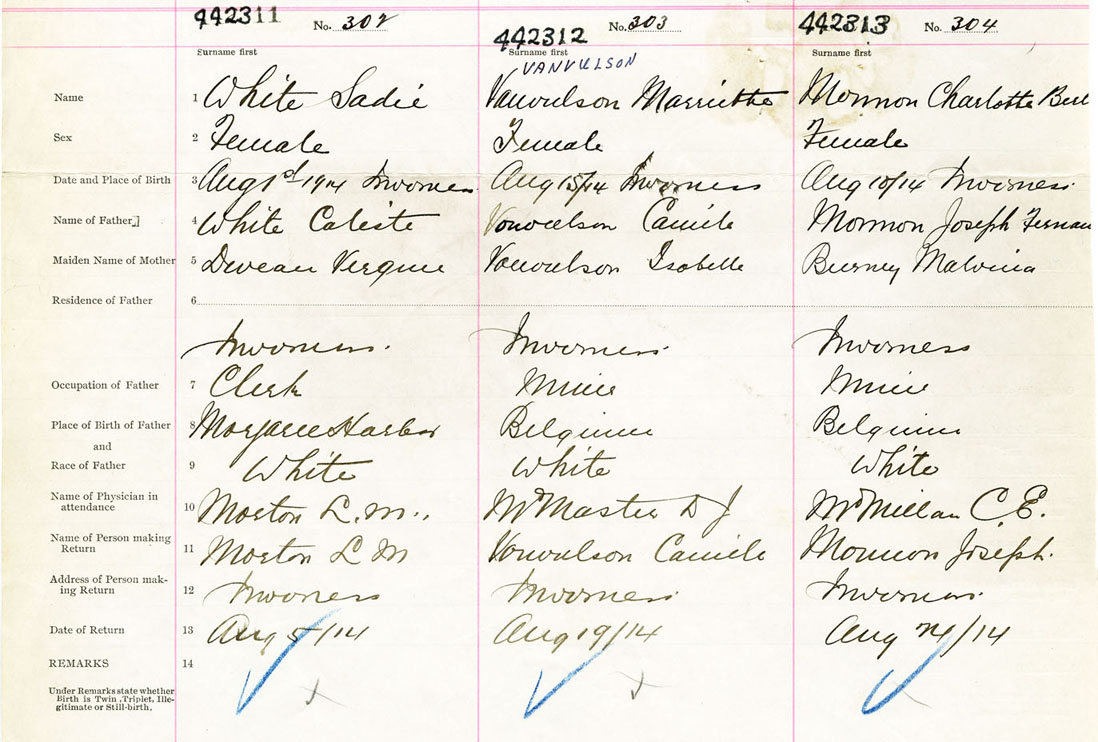 442311 No. 302 442312 No. 303 442313 No. 304
Surname first Surname first Surname first
VANVULSON
Name 1 White Sadie Vanvulson Marriette Monnon Charlotte Bert
Sex 2 Female Female Female
Date and Place of Birth 3 Aug 1st 1914 Inverness Aug 15/14 Inverness Aug 10/14 Inverness
Name of Father 4 White Celeste Vanvulson Camile Monnon Joseph Fernan
Maiden Name of Mother 5 Deveau Vanvulson Isabelle Burney Malvina
Residence of Father 6
Inverness Inverness Inverness
Occupation of Father 7 Clerk Mine Mine
Place of Birth of Father 8 Margaree Harbor Belgium Belgium
and
Race of Father 9 White White White
Name of Physician in
attendance 10 Morton L. M. McMaster D J McMillan C. E.
Name of Person making
Return 11 Morton L M Vanvulson Camile Monnon Joseph
Address of Person mak-
ing Return 12 Inverness Inverness Inverness
Date of Return 13 Aug 5/14 Aug 19/14 Aug /14
REMARKS 14
Under Remarks state whether
Birth is Twin, Triplet, Ille-
gitimate or Still-birth.